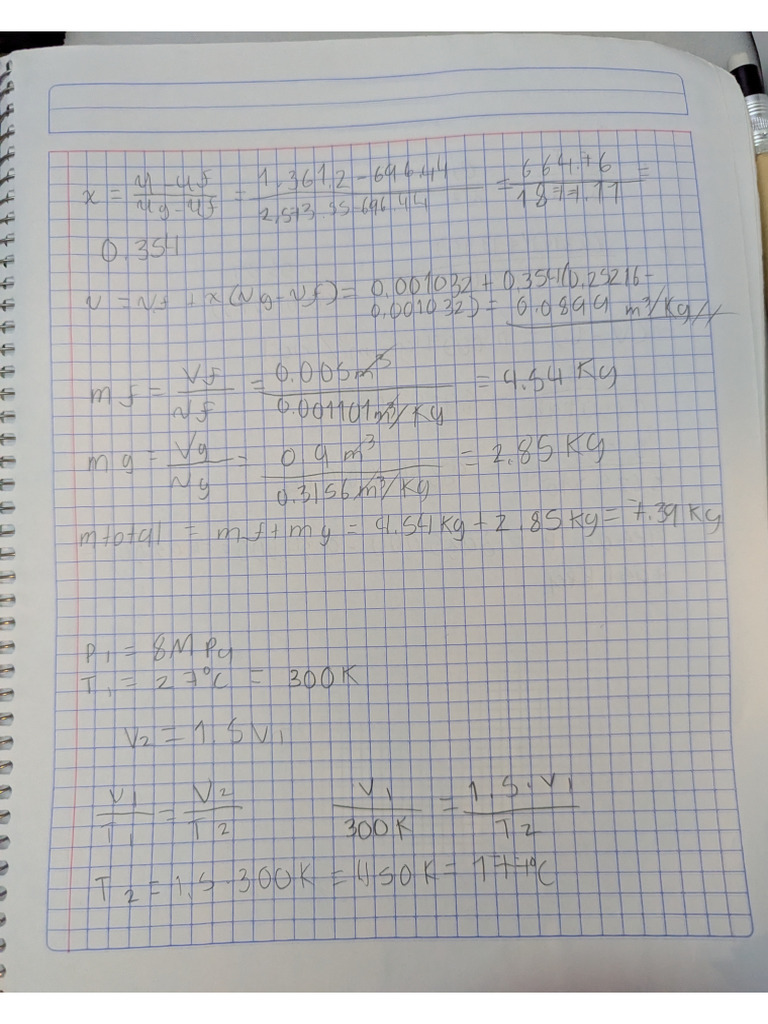 x = u - uf / ug - uf = 1,361.2 - 696.44 / 2,573.55-696.44 = 664.76 / 1877.11 =
0.354
v = vf + x(vg - vf) = 0.001032 + 0.354(0.25216 -
0.001032) = 0.0899 m³/Kg //
mf = Vf / vf = 0.005m³ / 0.001101m³/Kg = 4.54 Kg
mg = Vg / vg = 0.9 m³ / 0.3156 m³/Kg = 2.85 KG
mtotal = mf + mg = 4.54 Kg + 2.85 Kg = 7.39 Kg
P₁ = 8MPa
T₁ = 27°C = 300K
V₂ = 1.5V₁
V₁ / T₁ = V₂ / T₂ V₁ / 300K = 1.5 · V₁ / T₂
T₂ = 1.5 · 300K = 450K = 177°C